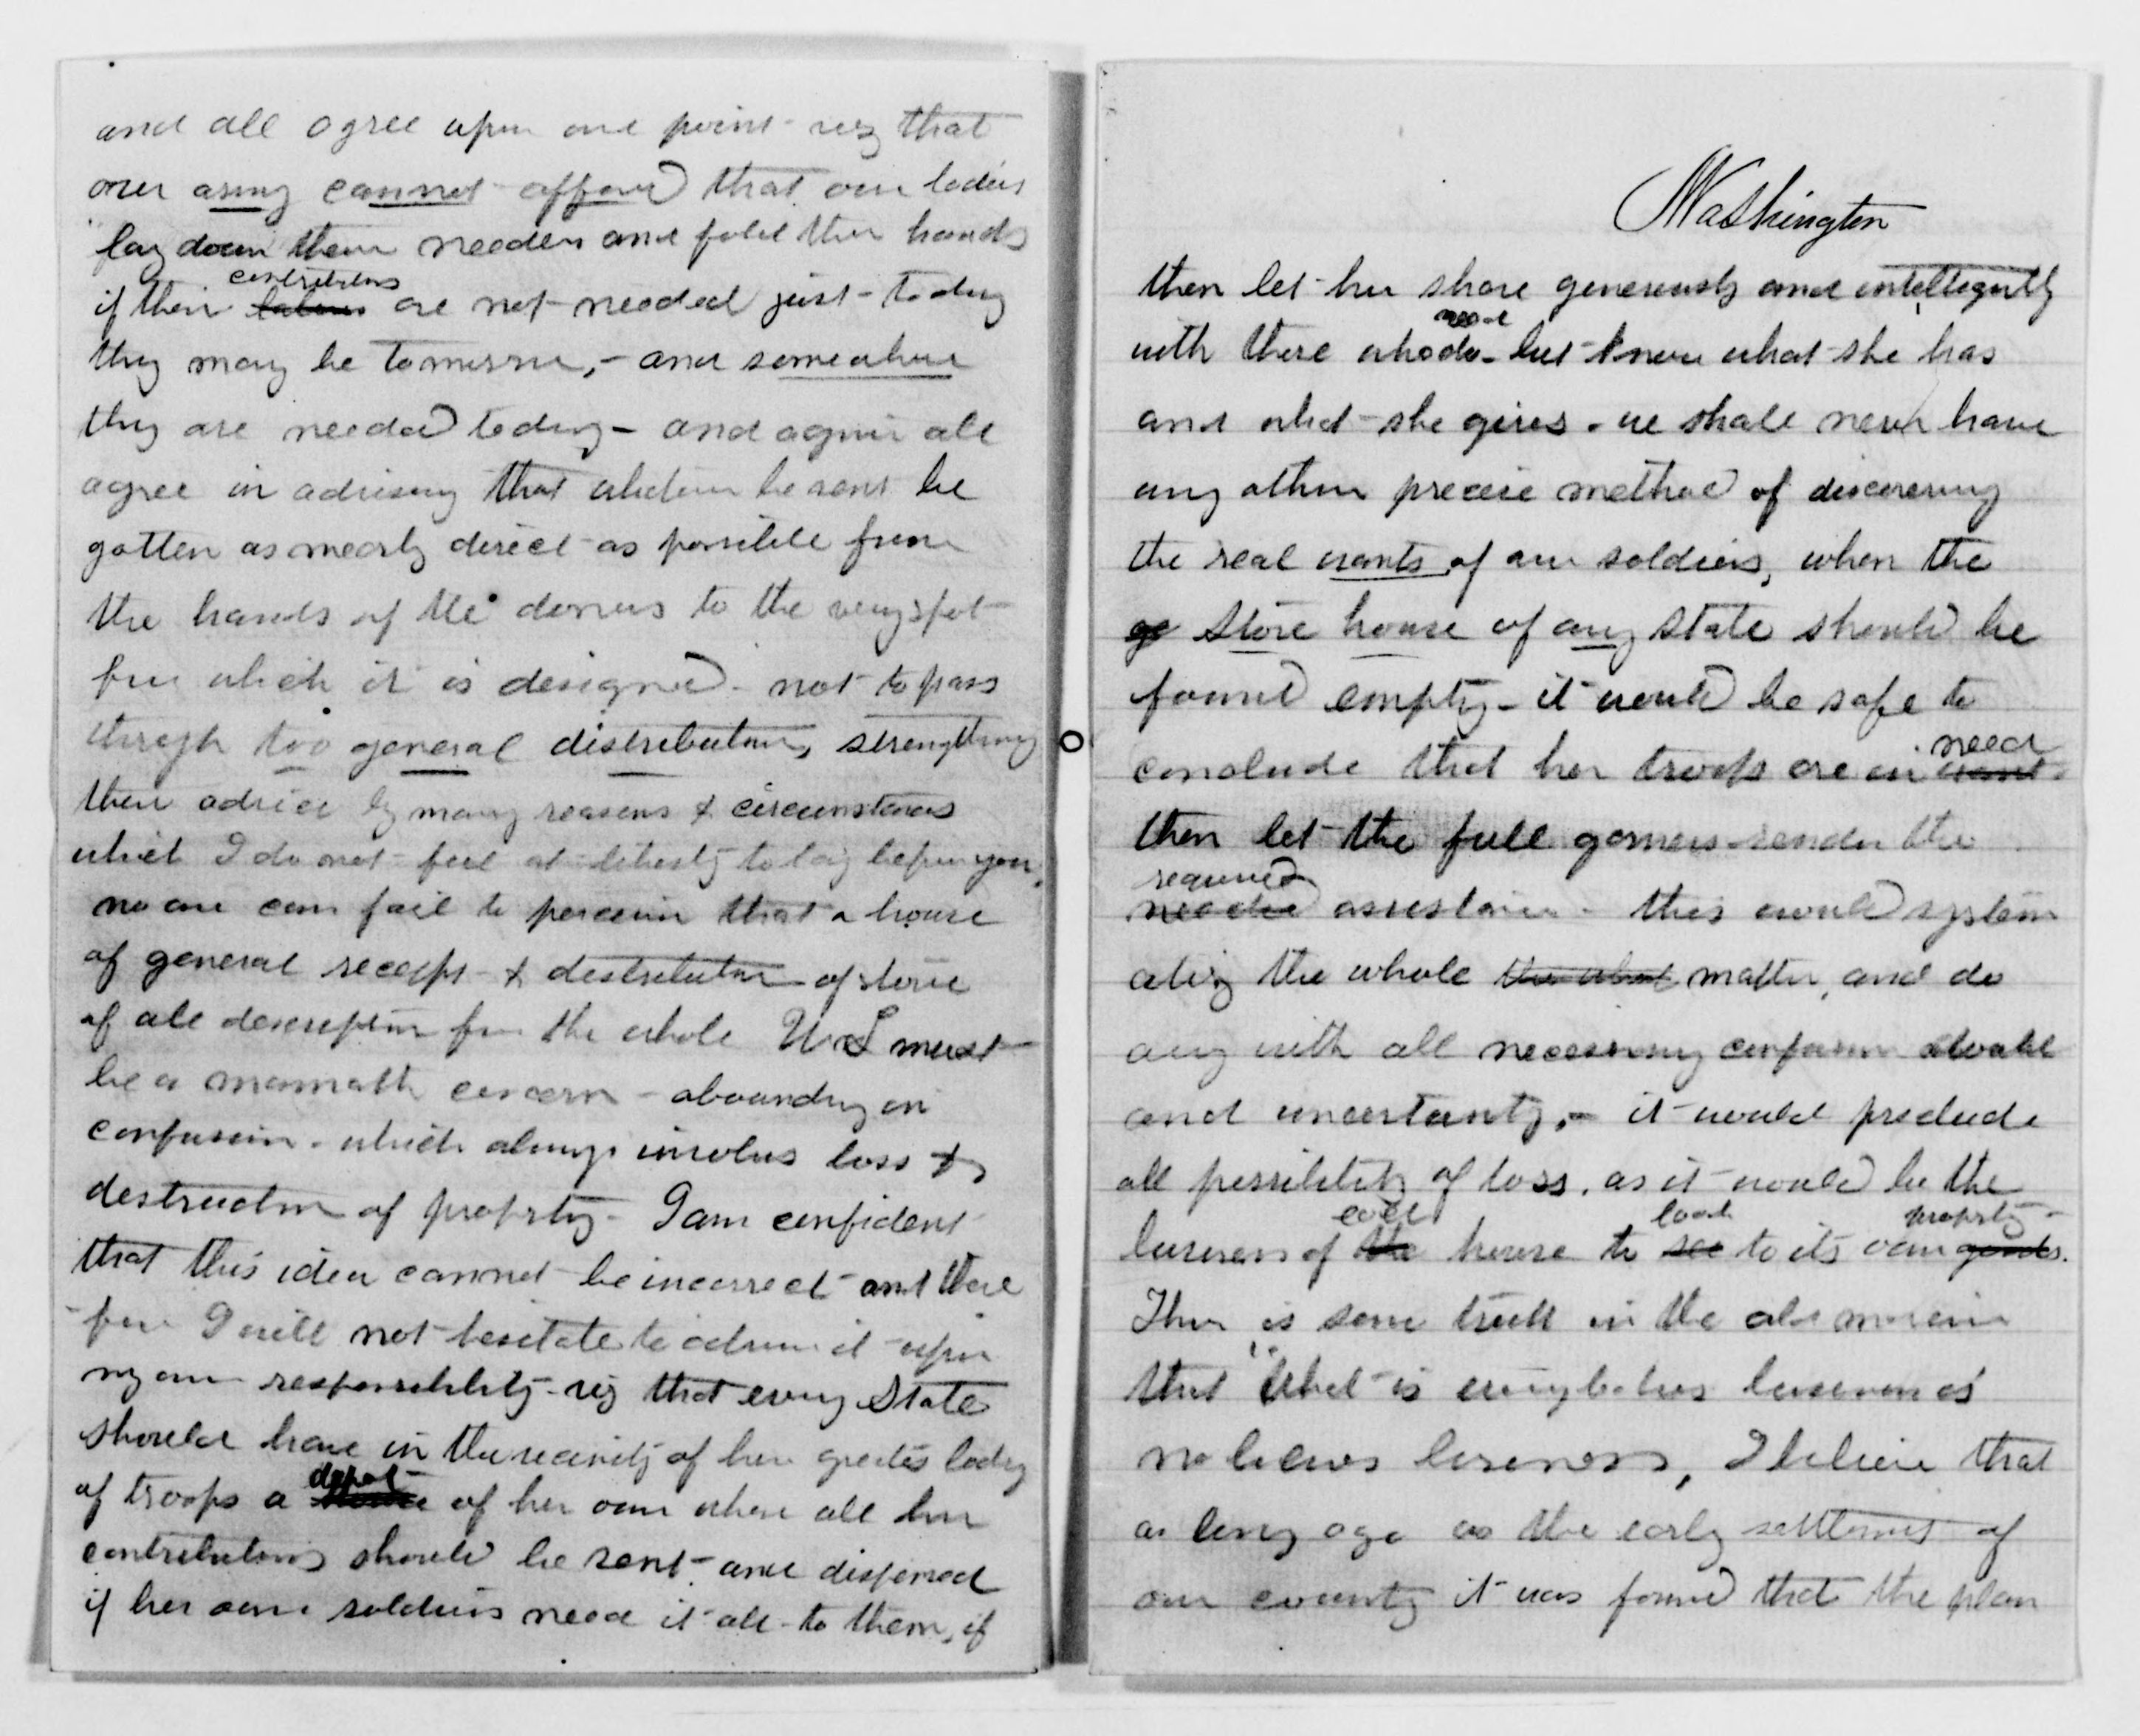 and all agree upon one point - viz that
our army cannot afford that our ladies
lay down their needles and fold their hands
contributions
if their labors are not needed just - today
they may be tomorrow, - and somewhere
they are needed today - and again all
agree in advising that whatever be sent be
gotten as nearly direct as possible from
the hands of the donors to the very spot
for which it is designed - not to pass
through too general distribution, strengthening
their advice by many reasons & circumstances
which I do not feel at liberty to lay before you,
no one can fail to perceive that a house
of general receipt & distribution of stores
of all description for the whole U S must
be a mamoth concern - abounding in
confusion - which always involves loss &
destruction of property - I am confident
that this idea cannot be incorrect and there
fore I will not hesitate to advance it upon
my own responsibility - viz that every State
should have in the vicinity of her greatest body
depot
of troops a house of her own where all her
contributions should be sent - and dispersed
if her own soldiers need it all - to them, if
Washington
then let her share generously and intelligently
need
with those who do - but know what she has
and what she gives - we shall never have
any other precise method of discovering
the real wants of our soldiers, when the
store house of any State should be
found empty - it would be safe to
need
conclude that her troops are in want
then let the full garners render the
required
needed assistance - this would system
atize the whole the whole matter, and do
away with all necessary confusion doubt
and uncertainty, - it would preclude
all possibility of loss, as it would be the
each look property
business of the house to see to its own goods.
There is some truth in the old maxim
that "what is everybodies business is
nobodies business, I believe that
as long ago as the early settlement of
our country it was found that the plan